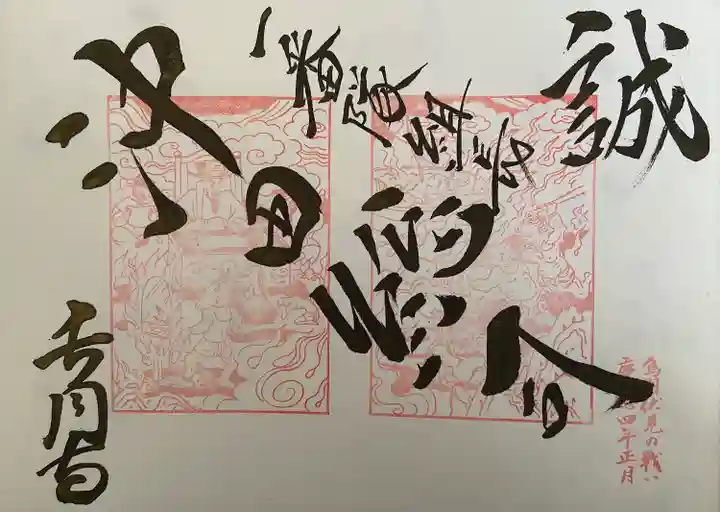 誠
一番隊組長
沖田總司
月吉日
鳥羽伏見の戦い
慶応四年正月